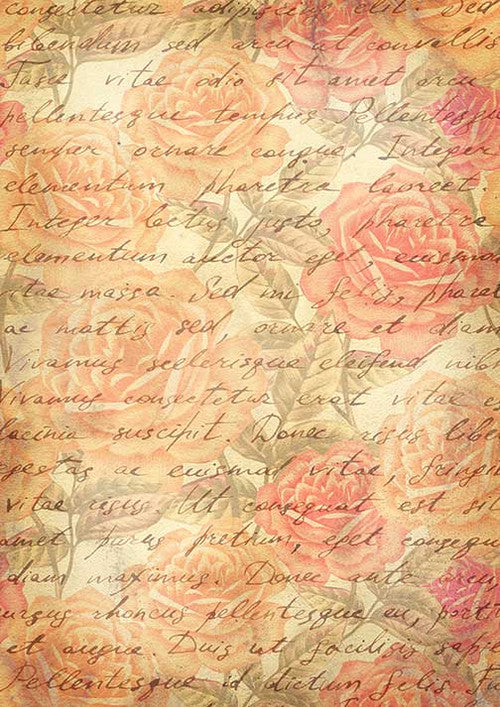 consectetur adipiscing elit. Sed
bibendum sed arcu ut convallis
Fusce vitae odio sit amet arcu
pellentesque tempus. Pellentesq
semper ornare congue. Integer
elementum pharetra laoreet.
Integer lectus justo, pharetra
elamentum auctor eget, euismod
vitae massa. Sed mi felis, pharet
ac mattis sed, ornare et diam
Vivamus scelerisque eleifend nibh
Vivamus consectetur erat vitae c
lacinia suscipit. Donec risus libe
egestas ac euismod vitae, fringil
vitae risus. Ut consequat est si
amet purus pretium, eget consequ
diam maximus. Donec ante arcu
ursus rhoncus pellentesque eu, port
et augue. Duis ut facilisis sapie
Pellentesque id dictum felis. Fa